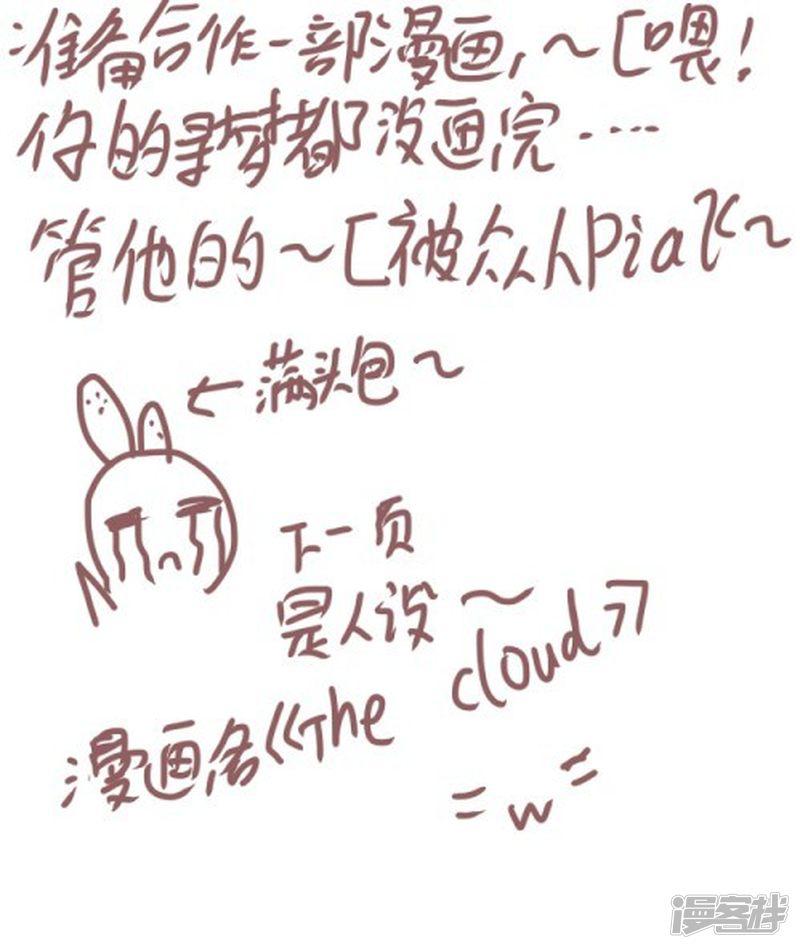 准备合作一部漫画,~[喂!
你的寻梦都没画完····
管他的~[被众人Pia飞~
←满头包~
下一页
是人设~
漫画名《The cloud》
=w=
漫客栈